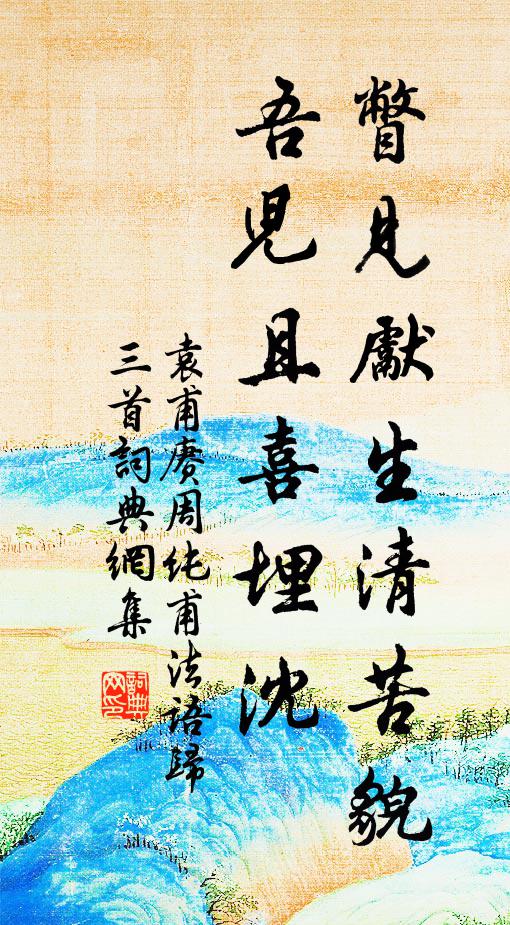 瞥見獻生清苦貌
吾兒且喜埋沈
袁甫賡周純甫法語歸
三首詞典網集
詞典網印